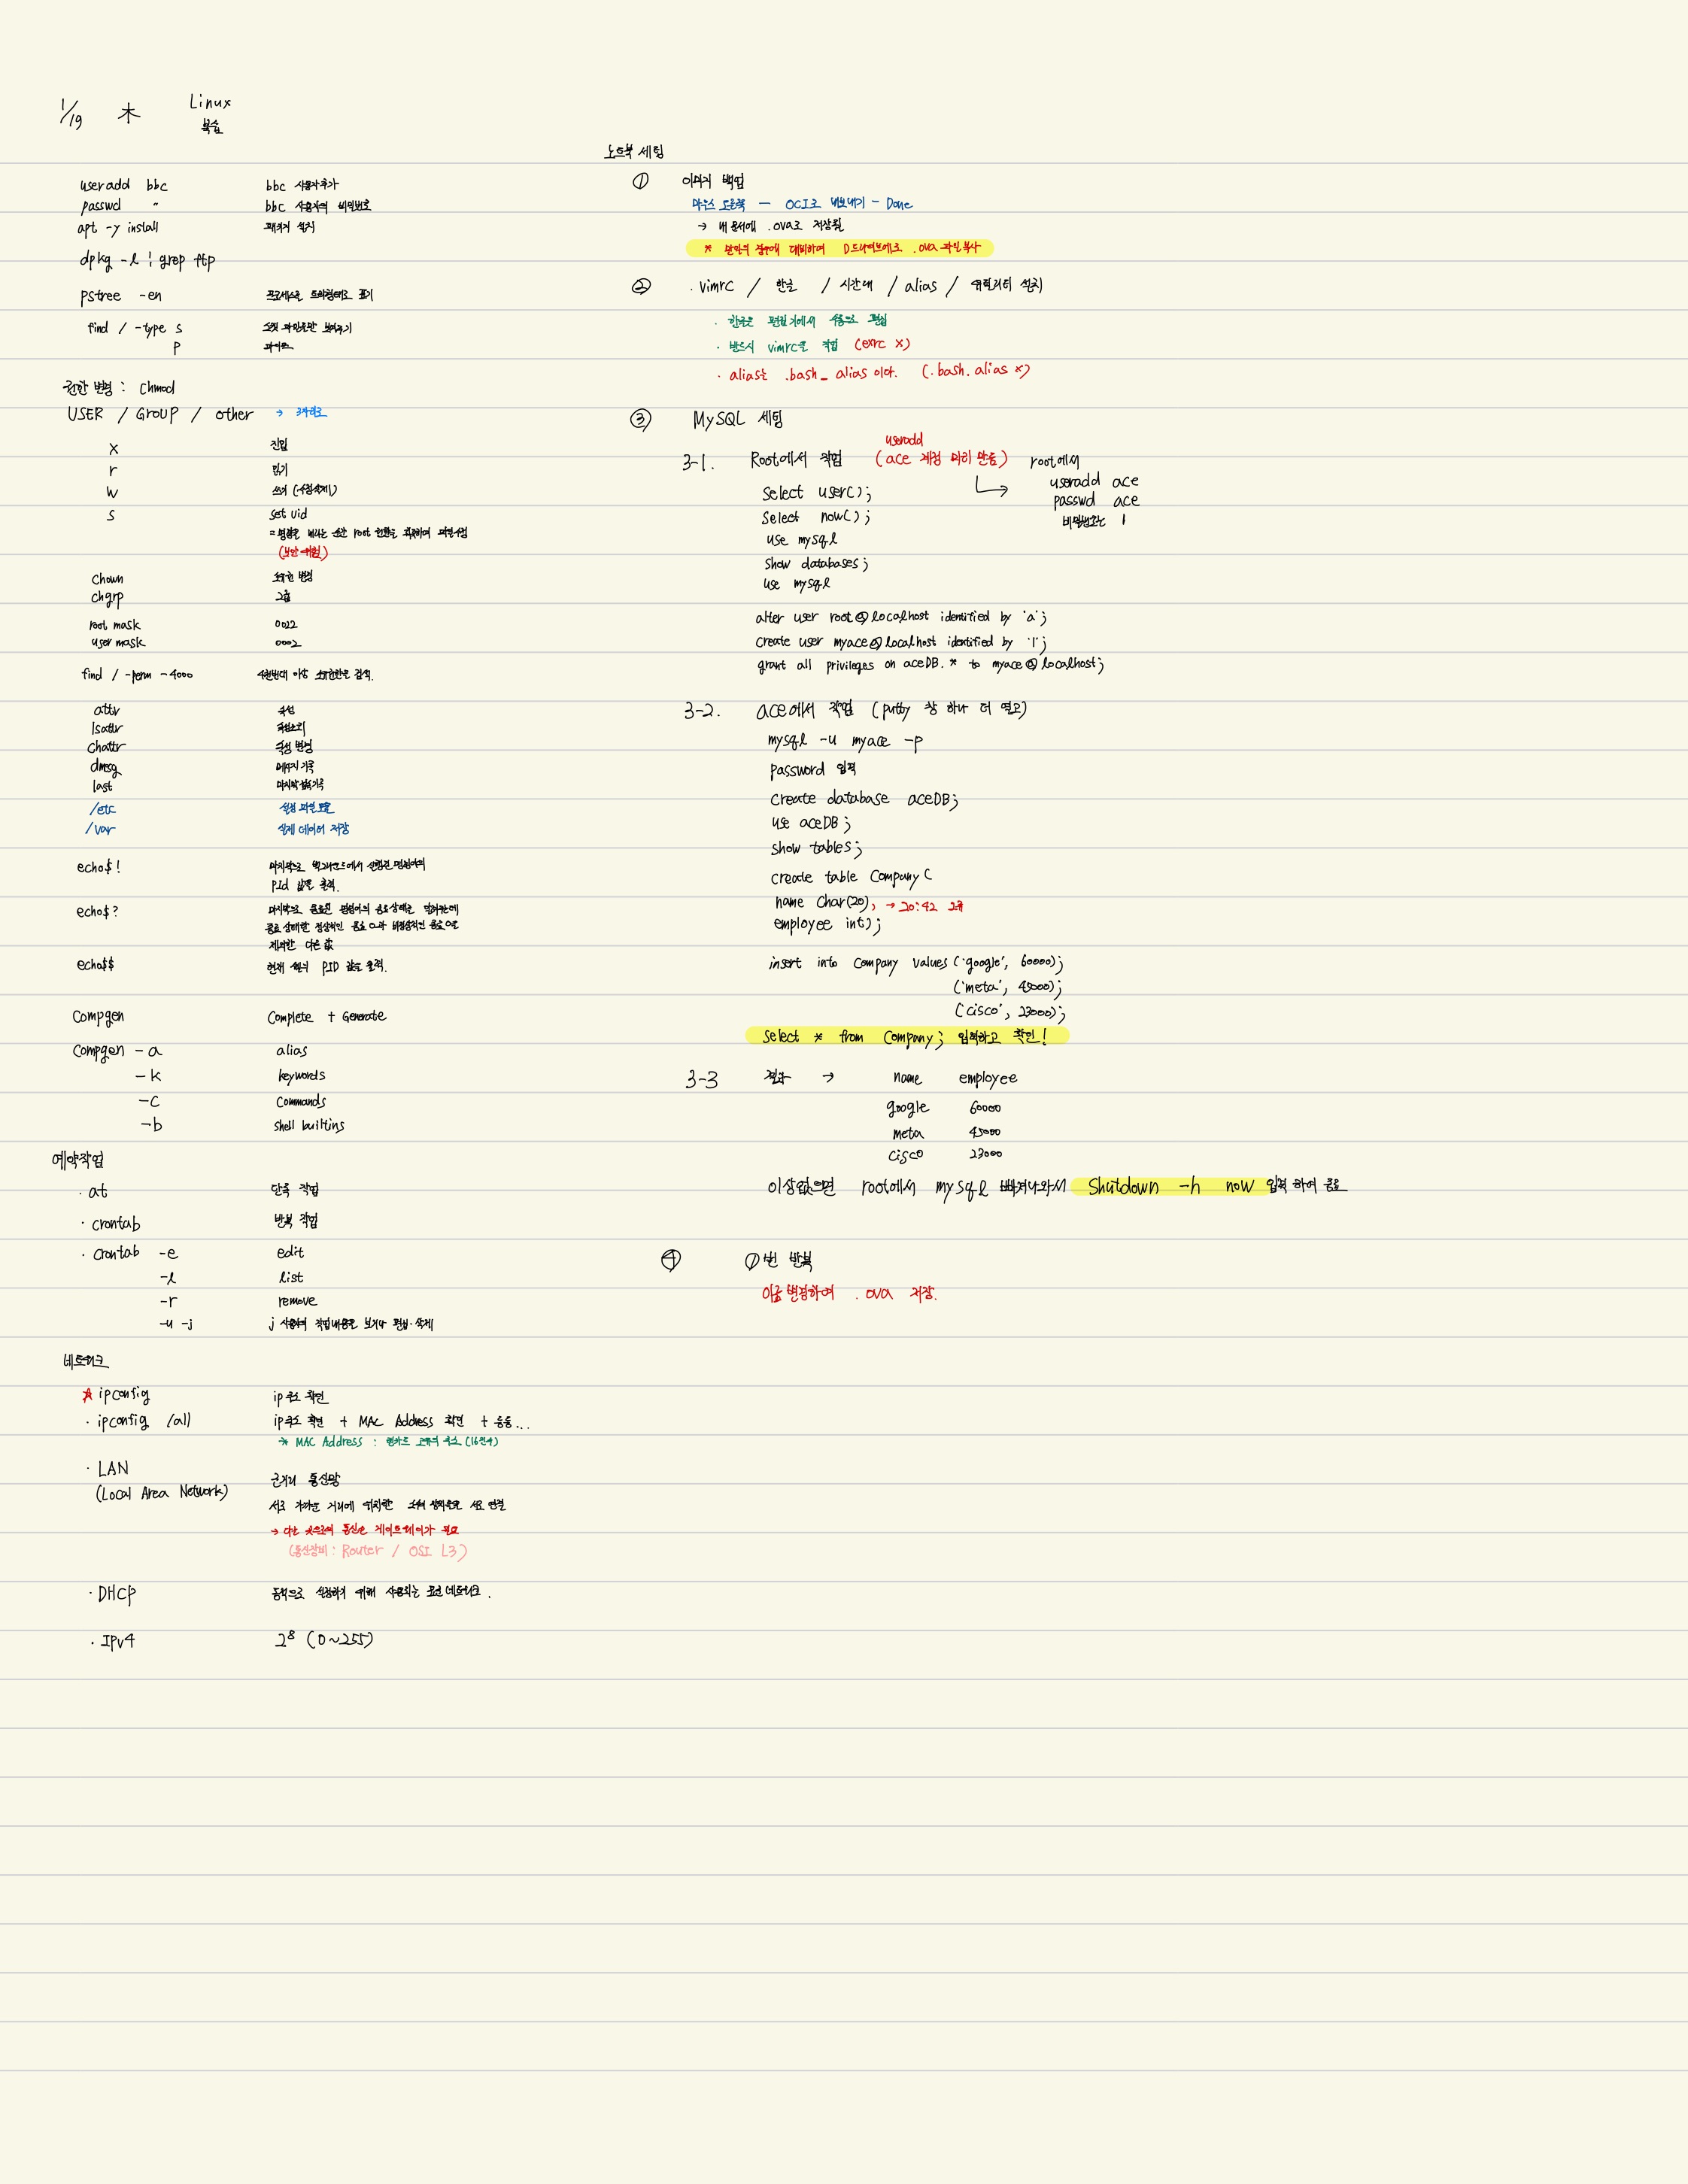 1/19 木 Linux
복습
useradd bbc bbc 사용자추가
passwd 〃 bbc 사용자의 비밀번호
apt -y install 패키지 설치
dpkg -l | grep ftp
pstree -en 프로세스를 트리형태로 표기
find / -type s 소켓 파일들만 보여주기
p 파이프
권한 변경 : chmod
USER / GROUP / other → 3자리로
x 진입
r 읽기
w 쓰기 (수정삭제)
s set uid
= 명령을 내리는 순간 root 권한을 획득하여 파일수정
(보안 위험)
chown 소유권 변경
chgrp 그룹
root mask 0022
user mask 0002
find / -perm -4000 4천번대 이상 소유권한을 검색.
attr 속성
lsattr 속성보기
chattr 속성 변경
dmesg 메세지 기록
last 마지막 접속기록
/etc 설정 파일 모음
/var 실제 데이터 저장
echo$! 마지막으로 백그라운드에서 실행된 명령어의
PId 값을 출력.
echo$? 마지막으로 종료된 명령어의 종료상태를
종료 상태란 정상적인 종료 0과 비정상적인 종료 0을
제외한 다른 값
echo$$ 현재 쉘의 PID 값을 출력.
Compgen Complete + Generate
Compgen -a alias
-k keywords
-c Commands
-b shell builtins
예약작업
· at 단독 작업
· crontab 반복 작업
· crontab -e edit
-l list
-r remove
-u -j j 사용자의 작업내용을 보거나 편집·삭제
네트워크
☆ ipconfig ip주소 확인
· ipconfig /all ip주소 확인 + MAC Address 확인 + 등등...
→ MAC Address : 랜카드 고유의 주소 (16진수)
· LAN 근거리 통신망
(Local Area Network) 서로 가까운 거리에 위치한 소위 장치들을 서로 연결
→ 다른 곳으로의 통신은 게이트웨이가 필요
(통신장비 : Router / OSI L3)
· DHCP 동적으로 설정하기 위해 사용되는 표준 네트워크.
· IPv4 2⁸ (0~255)
노트북 세팅
① 이미지 백업
마우스 오른쪽 — OCI로 내보내기 - Done
→ 내 문서에 .ova로 저장됨
* 만약의 경우에 대비하여 D드라이브에로 .ova 파일 복사
② .vimrc / 한글 / 시간대 / alias / 유틸리티 설치
· 한글은 편집기에서 수동으로 편집
· 반드시 vimrc로 작업 (exrc X)
· alias는 .bash_alias 이다. (.bash.alias X)
③ MySQL 세팅
useradd
3-1. Root에서 작업 (ace 계정 미리 만듬) root에서
useradd ace
passwd ace
비밀번호는 1
Select user();
Select now();
use mysql
show databases;
use mysql
alter user root@localhost identified by 'a';
create user myace@localhost identified by '1';
grant all privileges on aceDB.* to myace@localhost;
3-2. ace에서 작업 (putty 창 하나 더 열고)
mysql -u myace -p
password 입력
create database aceDB;
use aceDB;
show tables;
create table Company (
name char(20), → 20:42 교육
employee int);
insert into company values ('google', 60000);
('meta', 45000);
('cisco', 23000);
Select * from Company; 입력하고 확인!
3-3 결과 → name employee
google 60000
meta 45000
cisco 23000
이상없으면 root에서 mysql 빠져나와서 Shutdown -h now 입력 하여 종료
④ ①번 반복
이름 변경하여 .ova 저장.